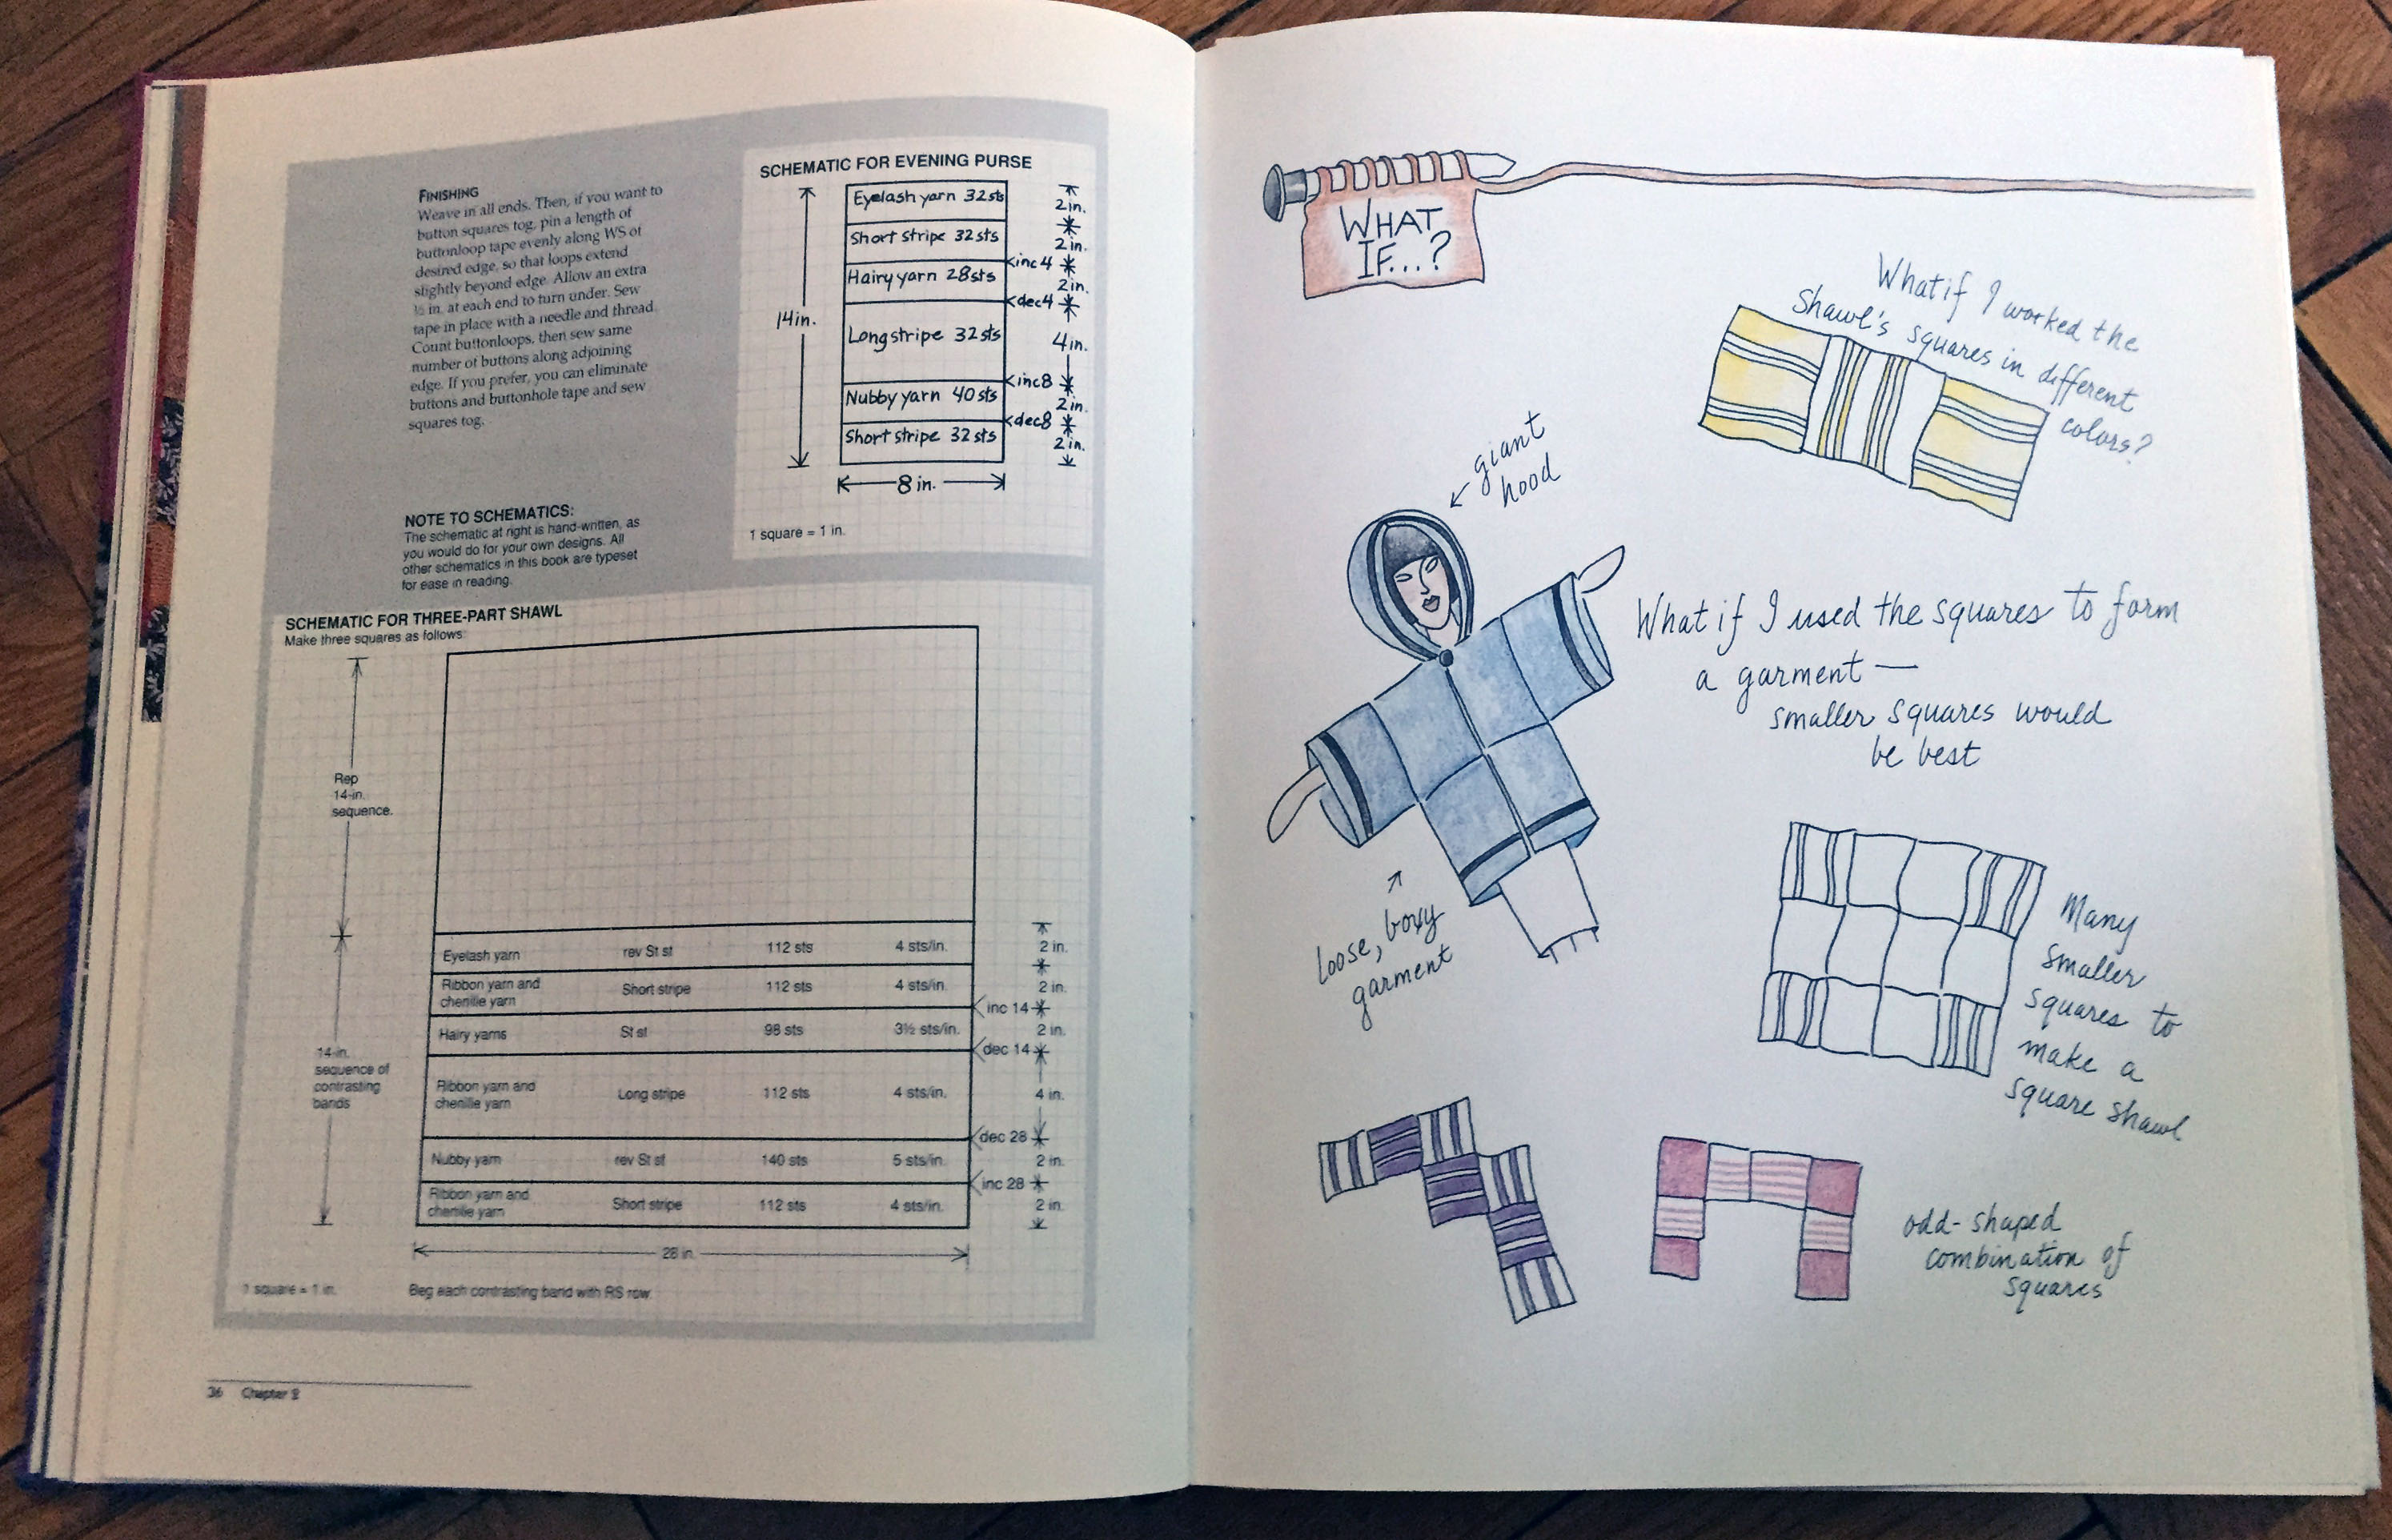 FINISHING
Weave in all ends. Then, if you want to
button squares tog, pin a length of
buttonloop tape evenly along WS of
desired edge, so that loops extend
slightly beyond edge. Allow an extra
½ in. at each end to turn under. Sew
tape in place with a needle and thread.
Count buttonloops, then sew same
number of buttons along adjoining
edge. If you prefer, you can eliminate
buttons and buttonhole tape and sew
squares tog.
NOTE TO SCHEMATICS:
The schematic at right is hand-written, as
you would do for your own designs. All
other schematics in this book are typeset
for ease in reading.
SCHEMATIC FOR EVENING PURSE
Eyelash yarn 32sts
2in.
Short stripe 32sts
2in.
inc 4
Hairy yarn 28sts
2in.
dec4
14in.
Long stripe 32sts
4in.
inc8
Nubby yarn 40sts
2in.
dec8
Short stripe 32sts
2in.
8 in.
1 square = 1 in.
SCHEMATIC FOR THREE-PART SHAWL
Make three squares as follows:
Rep
14-in.
sequence.
14-in.
sequence of
contrasting
bands
Eyelash yarn rev St st 112 sts 4 sts/in. 2 in.
Ribbon yarn and
chenille yarn Short stripe 112 sts 4 sts/in. 2 in.
inc 14
Hairy yarns St st 98 sts 3½ sts/in. 2 in.
dec 14
Ribbon yarn and
chenille yarn Long stripe 112 sts 4 sts/in. 4 in.
dec 28
Nubby yarn rev St st 140 sts 5 sts/in. 2 in.
inc 28
Ribbon yarn and
chenille yarn Short stripe 112 sts 4 sts/in. 2 in.
28 in.
1 square = 1 in.
Beg each contrasting band with RS row.
36 Chapter 2
WHAT
IF...?
What if I worked the
Shawl's squares in different
colors?
giant
hood
What if I used the squares to form
a garment —
smaller squares would
be best
loose, boxy
garment
Many
smaller
squares to
make a
square shawl
odd-shaped
combination of
squares